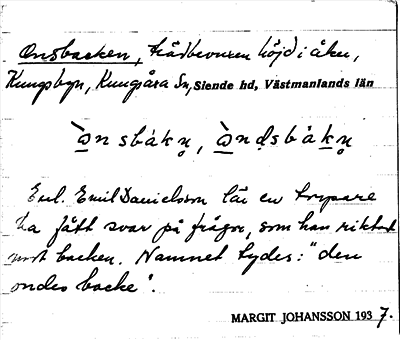 Onsbacken, trädbevuxen höjd i åker,
Kungsbyn, Kungsåra Sn, Siende hd, Västmanlands län
ònsbákn̥, òndsbákn̥
Enl. Emil Danielsson lär en torpare
ha fått svar på frågor, som han riktat
mot backen. Namnet tydes: "den
ondes backe".
MARGIT JOHANSSON 1937.